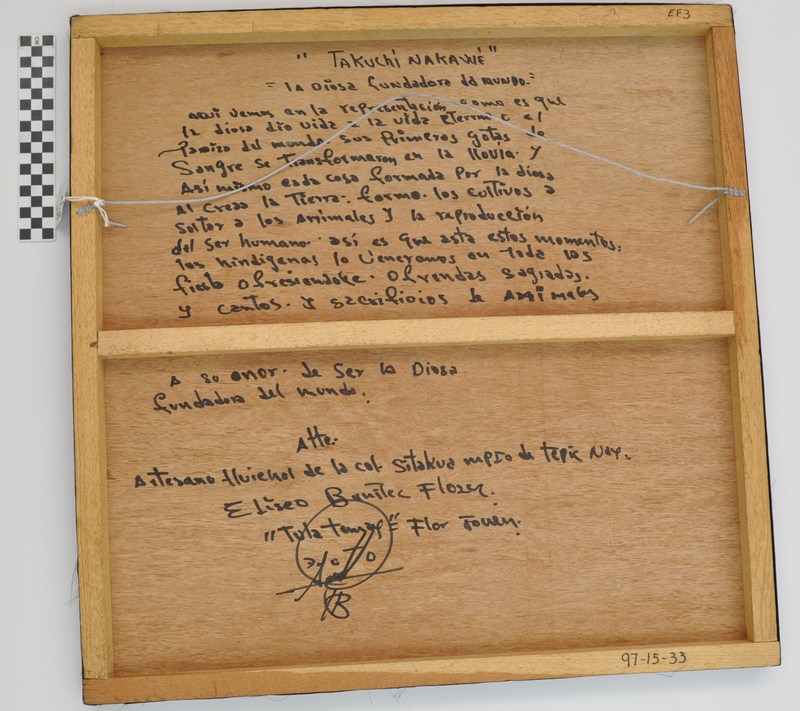 EF3
" TAKUCHI NAKAWÉ "
= LA Diosa fundadora dd MUNDO. =
AQUI Vemos en la representación, como es que
la diosa dio vida a la vida eterna c el
Paraiso del mundo sus Primeros gotas de
Sangre se Transformaron en la lluvia. Y
Así mismo cada cosa formada Por la diosa
Al crear la Tierra. formo. los cultivos a
Soltar a los Animales y la reproducción
del Ser humano. así es que asta estos momentos.
los hindigenas la Veneramos en Toda las
fiesta ofresiendole. Ofrendas Sagradas.
y cantos. y sacrificios de Animales
A su onor. de Ser la Diosa
fundadora del mundo.
Atte.
Artesano Huichol de la col. Sitakua mpio de tepic Nay.
Eliseo Benitec Flores.
"Tutu temay" = Flor Joven.
97-15-33